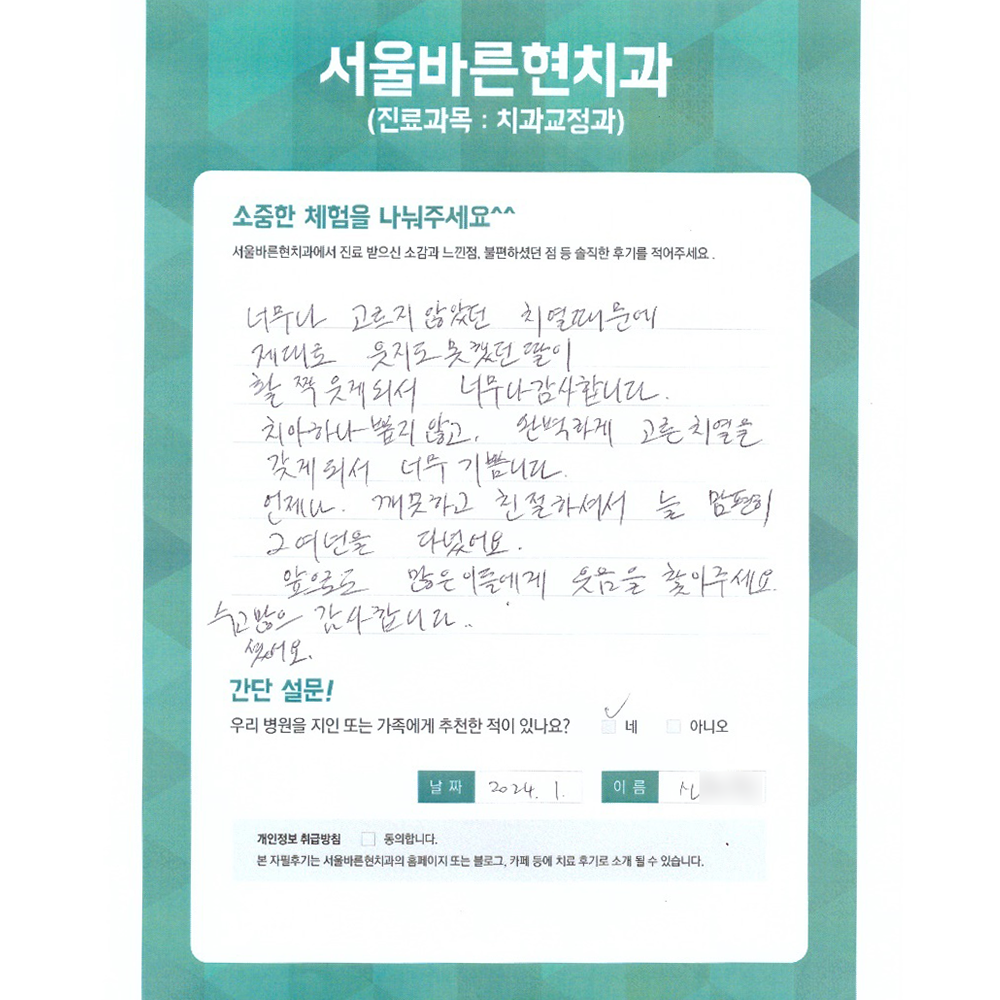 서울바른현치과
(진료과목 : 치과교정과)
소중한 체험을 나눠주세요^^
서울바른현치과에서 진료 받으신 소감과 느낀점, 불편하셨던 점 등 솔직한 후기를 적어주세요.
너무나 고르지 않았던 치열때문에
제대로 웃지도 못했던 딸이
활짝 웃게되서 너무나감사합니다.
치아하나 뽑지 않고, 완벽하게 고른 치열을
갖게되서 너무 기쁩니다.
언제나. 깨끗하고 친절하셔서 늘 맘편히
2여년을 다녔어요.
앞으로도 많은이들에게 웃음을 찾아주세요
수고많으 감사합니다..
셨어요.
간단 설문!
우리 병원을 지인 또는 가족에게 추천한 적이 있나요? 네 아니오
날 짜 2024. 1. 이 름 신
개인정보 취급방침 동의합니다.
본 자필후기는 서울바른현치과의 홈페이지 또는 블로그, 카페 등에 치료 후기로 소개 될 수 있습니다.